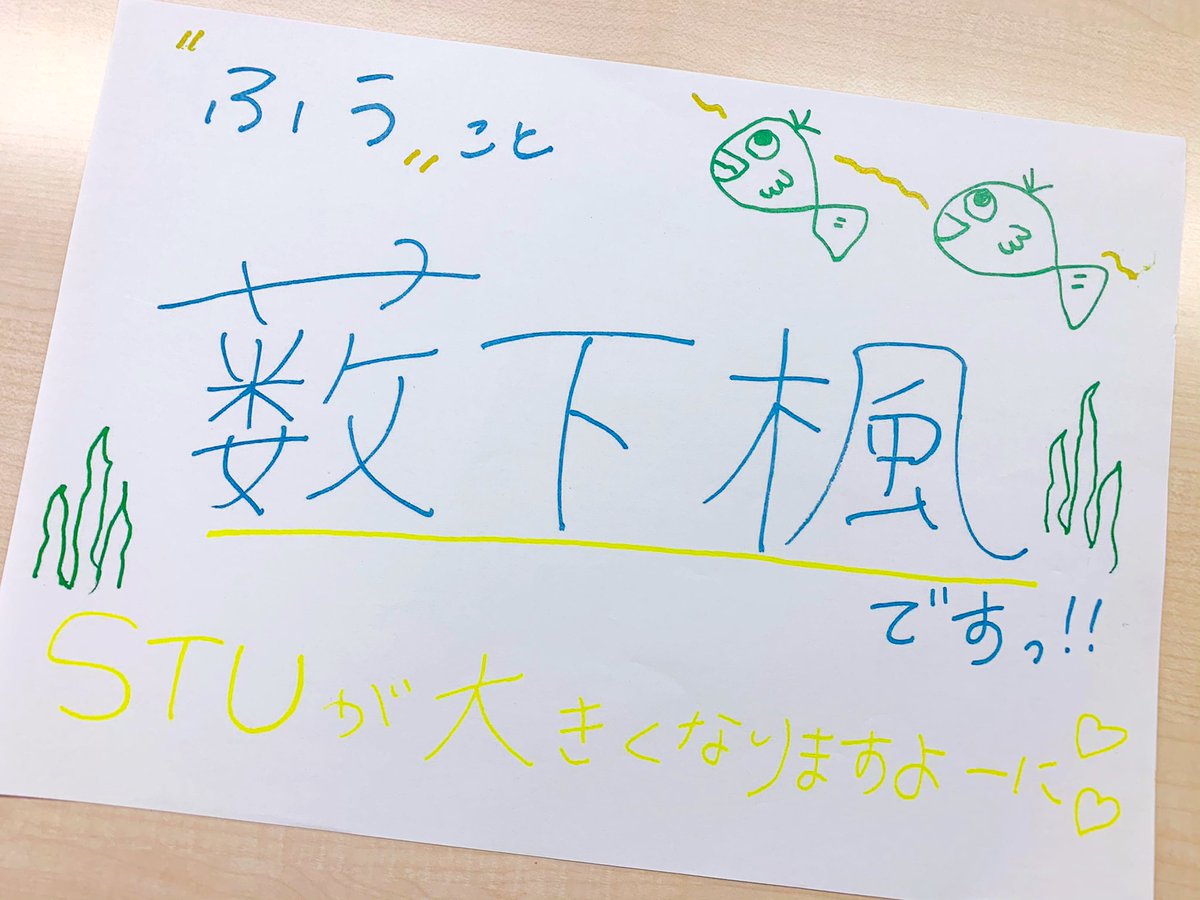 "ふぅ"こと
薮下楓
ですっ!!
STUが大きくなりますよーに♡♡